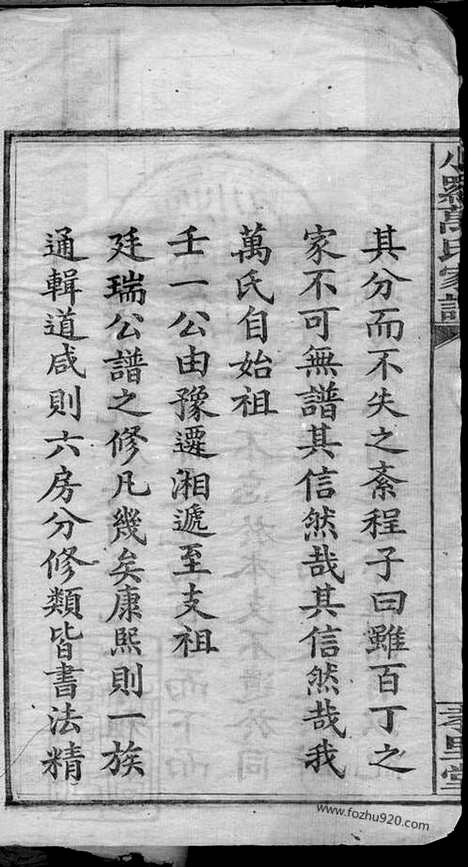 小羅萬氏家譜
其分而不失之紊程子曰雖百丁之
家不可無譜其信然哉其信然哉我
萬氏自始祖
壬一公由豫遷湘遞至支祖
廷瑞公譜之修凡幾矣康熙則一族
通輯道咸則六房分修類皆書法精
www.fozhu920.com